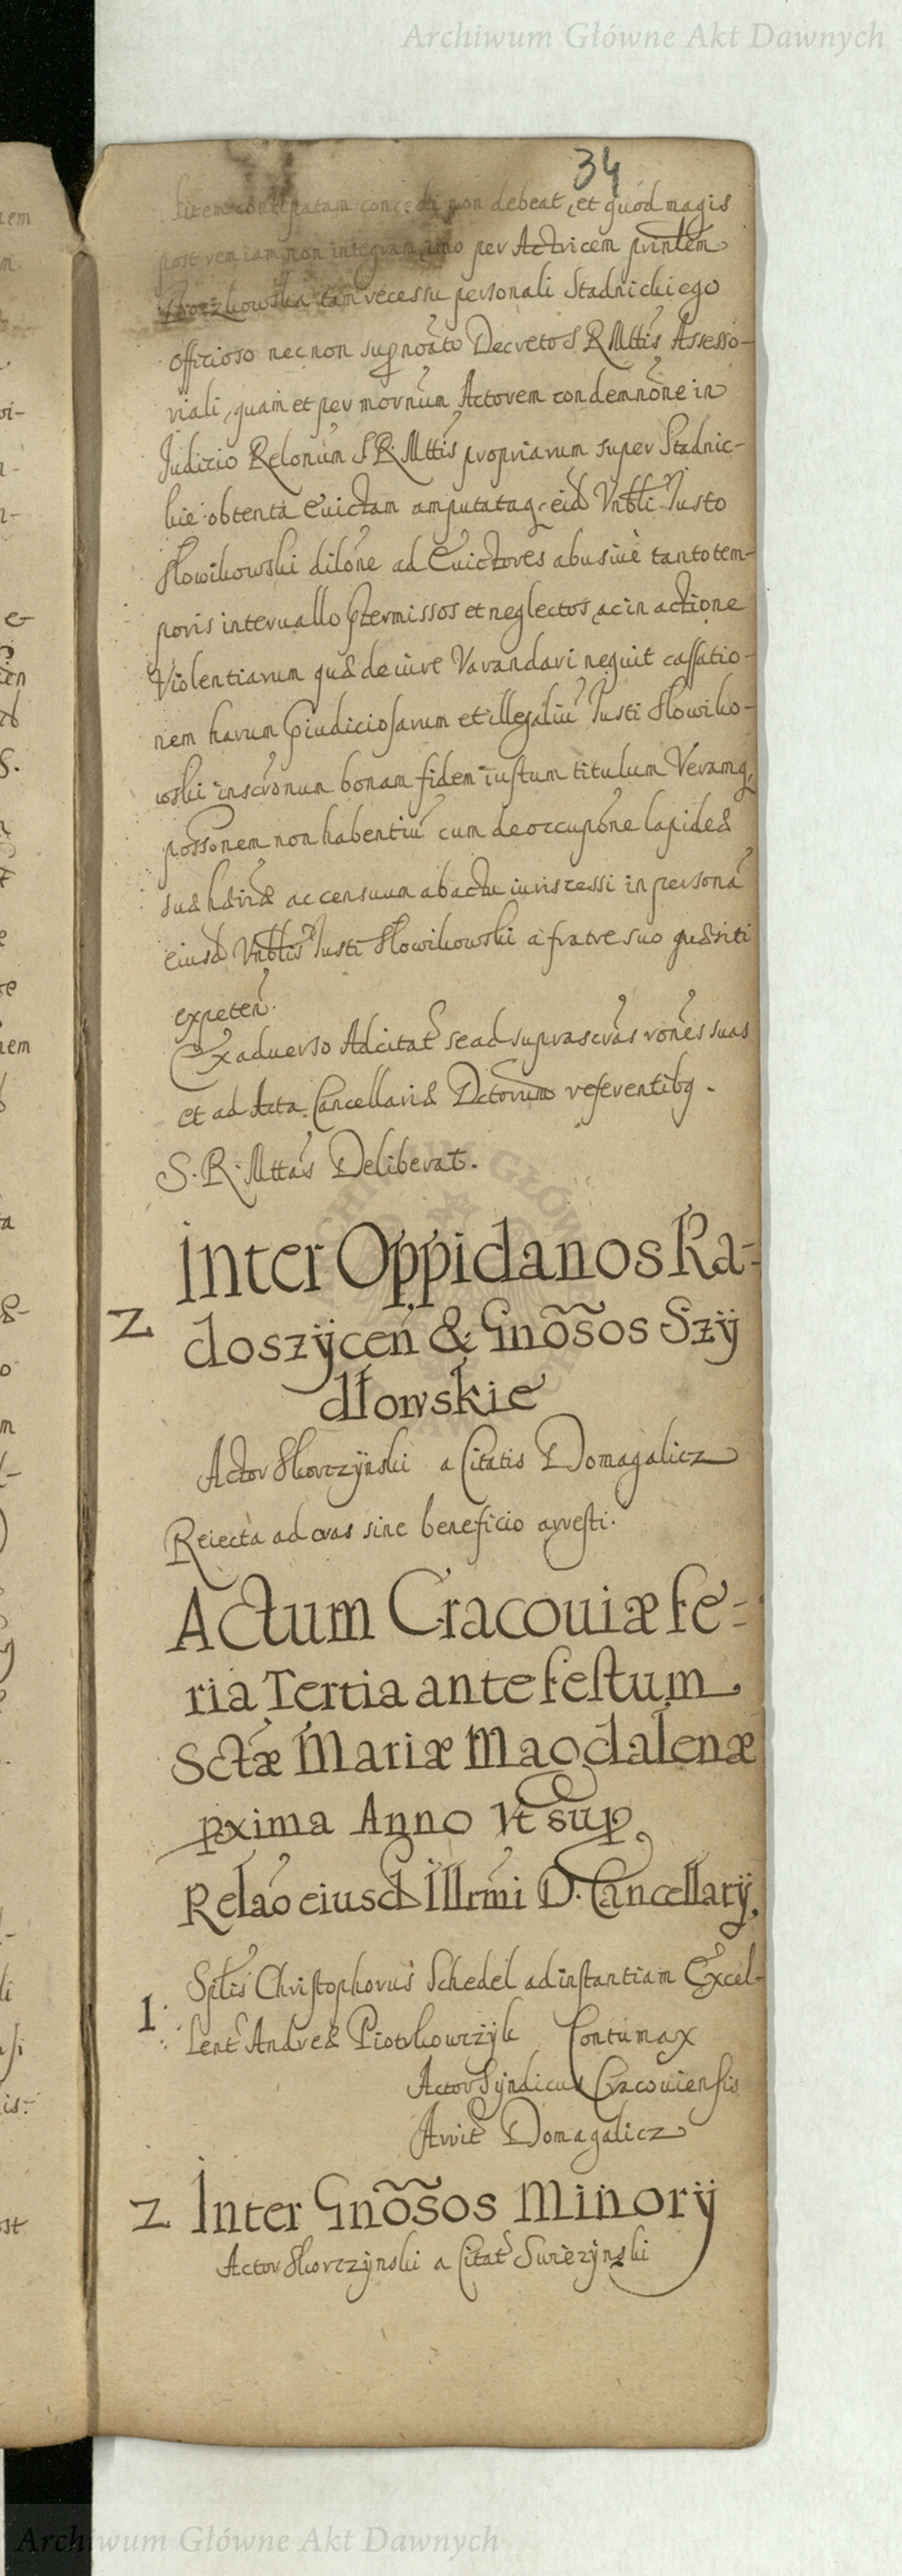 Archiwum Główne Akt Dawnych
34
litem contestatam concedi non debeat, et quód magis
post rem iam non integram imo per Actricem prińtem
tam recessu personali Stadnickiego
officioso nec non supnoáto Decreto S R Mttis Assesso-
riali, quam et per mornúm Actorem condemnóne in
Judicio Relonúm S R Mttis propriarum super Stadnic-
kie obtenta Euictam amputataq eid Vrbli Justo
Słowikowski dilóne ad Euictores abusiué tanto tem-
poris interuallo ptermissos et neglectos ac in actione
Violentiarum quæ de iure Varandari nequit cassatio-
nem harum piudiciosarum et illegaliú Justi Słowiko-
wski inscronum bonam fidem iustum titulum Veramq
possonem non habentiú cum deoccupóne lapideæ
suæ hæriæ ac censuum ab actu iuris cessi in personá
eiusd Vrblis Justi Słowikowski a fratre suo quæsiti
expeteń.
Ex aduerso Adcitat se ad suprascrás rónes suas
et ad Acta Cancellariæ Dctorum referentibq.
S. R. Mttás Deliberat.
Inter Oppidanos Ra-
2
doszÿceń & Gnõsos Szÿ
dłowskie
Actor Skorczÿnski a Citatis Domagalicz
Reiecta ad cras sine beneficio arresti.
Actum Cracouiæ fe-
ria Tertia ante festum
Sctæ Mariæ Magdalenæ
pxima Anno Vt sup
Relaó eiusd Illrmi D. Cancellarÿ.
1. Sptlis Christophorus Schedel ad instantiam Excel-
lent Andreæ Piotrkowczÿk Contumax
Actor Sÿndicus Cracouiensis
Arrit Domagalicz
2 Inter Gnõsos Minorÿ
Actor Skorczÿnski a Citat
Archiwum Główne Akt Dawnych